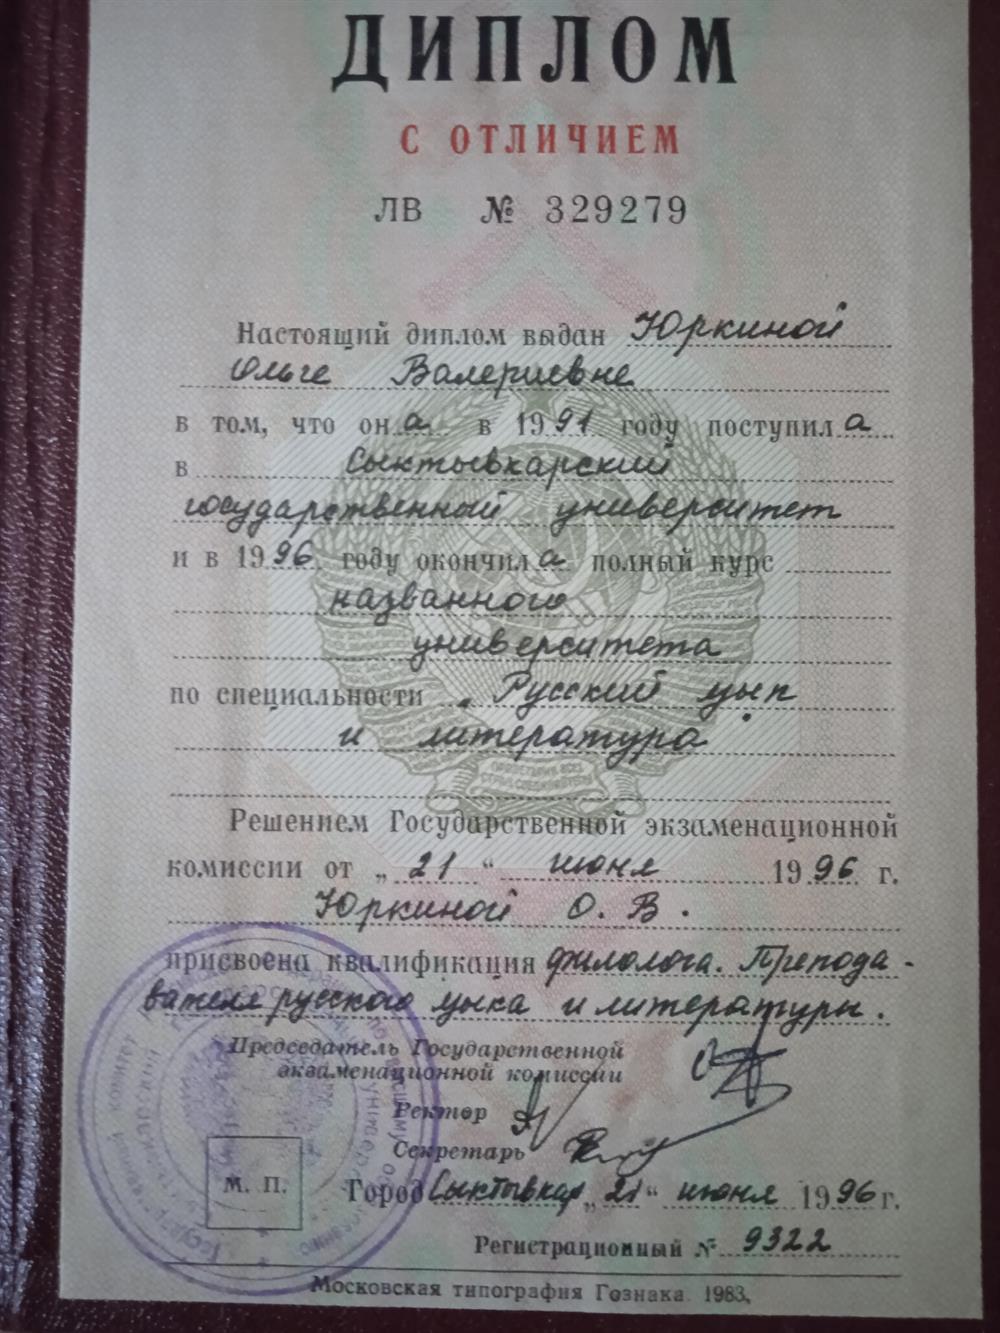 ДИПЛОМ
С ОТЛИЧИЕМ
ЛВ № 329279
Настоящий диплом выдан Юркиной
Ольге Валериевне
в том, что она в 1991 году поступила
в Сыктывкарский
государственный университет
и в 1996 году окончила полный курс
названного
университета
по специальности „Русский язык
и литература"
Решением Государственной экзаменационной
комиссии от „21“ июня 1996 г.
Юркиной О. В.
присвоена квалификация филолога. Препода-
вателя русского языка и литературы.
Председатель Государственной
экзаменационной комиссии
Ректор
Секретарь
М. П.
Город Сыктывкар „21“ июня 1996 г.
Регистрационный № 9322
Московская типография Гознака. 1983.